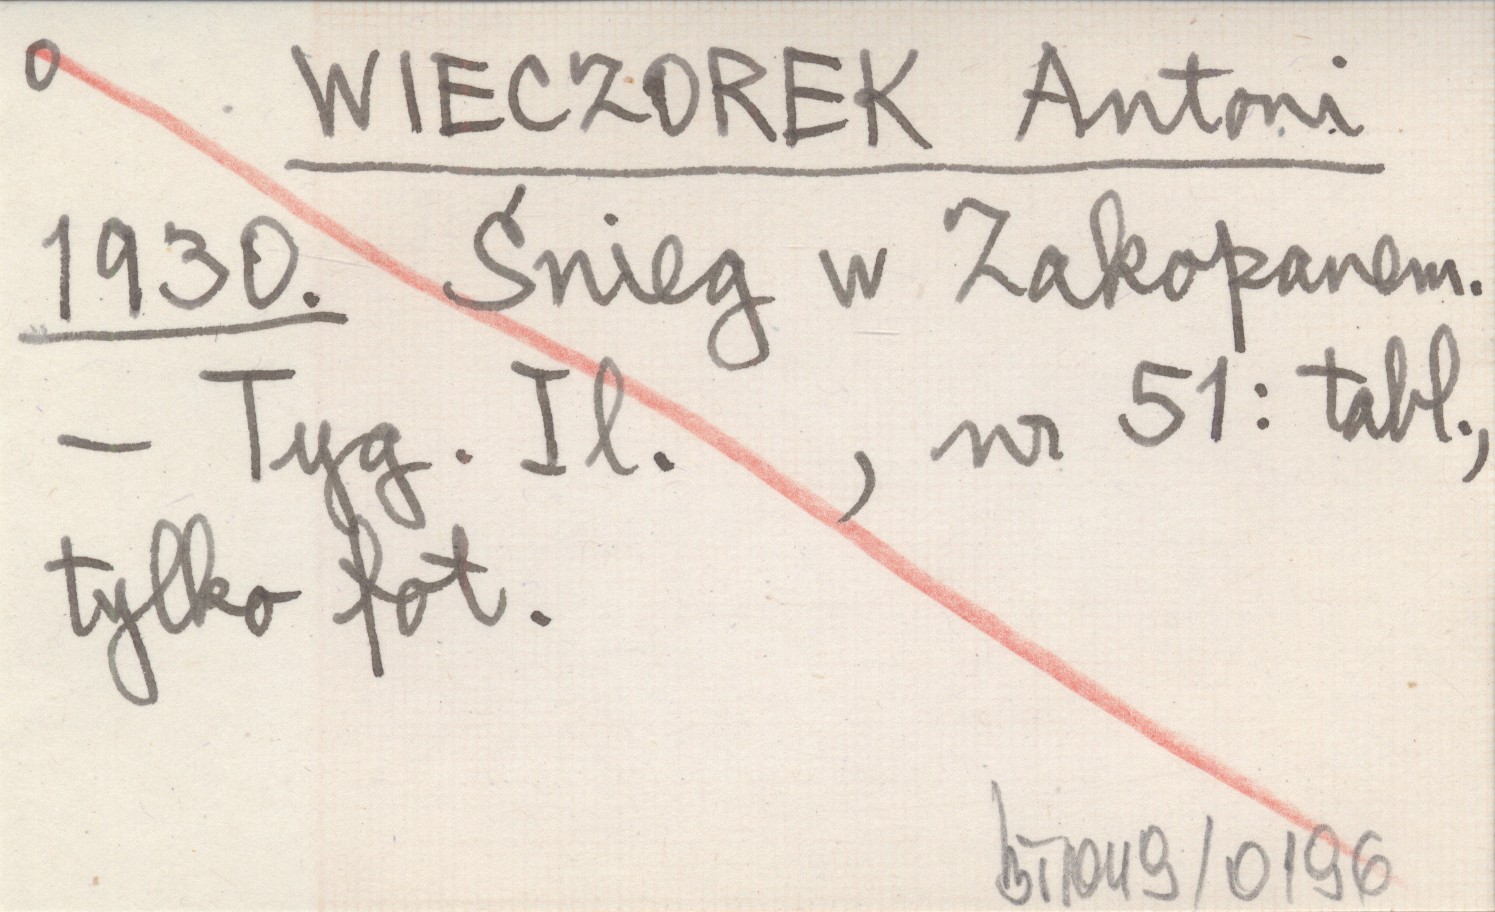 0 WIECZOREK Antoni
1930. Śnieg w Zakopanem.
– Tyg. Il. , nr 51: tabl.,
tylko fot.
0196